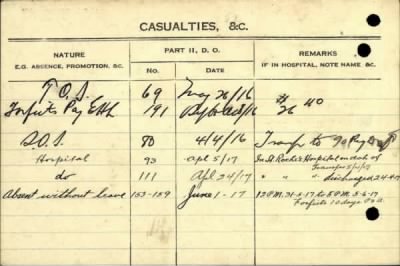 CASUALTIES, &C.
NATURE
E.G. ABSENCE, PROMOTION, &C.
PART II, D. O.
NO.
DATE
REMARKS
IF IN HOSPITAL, NOTE NAME &C.
T.O.S. 69 May 26/16
Forfeits Pay 191 /16 $26 40
S.O.S. 80 4/4/16 Transf to
Hospital 93 Apl 5/17 In St Roch's Hospital on date of
Transfer
do 111 Apl 24/17 " " " discharged 24-4-17
Absent without leave 153-159 June 1-17 12 P.M. 31-5-17 to 5 P.M. 3-6-17
Forfeits 10 days Pay